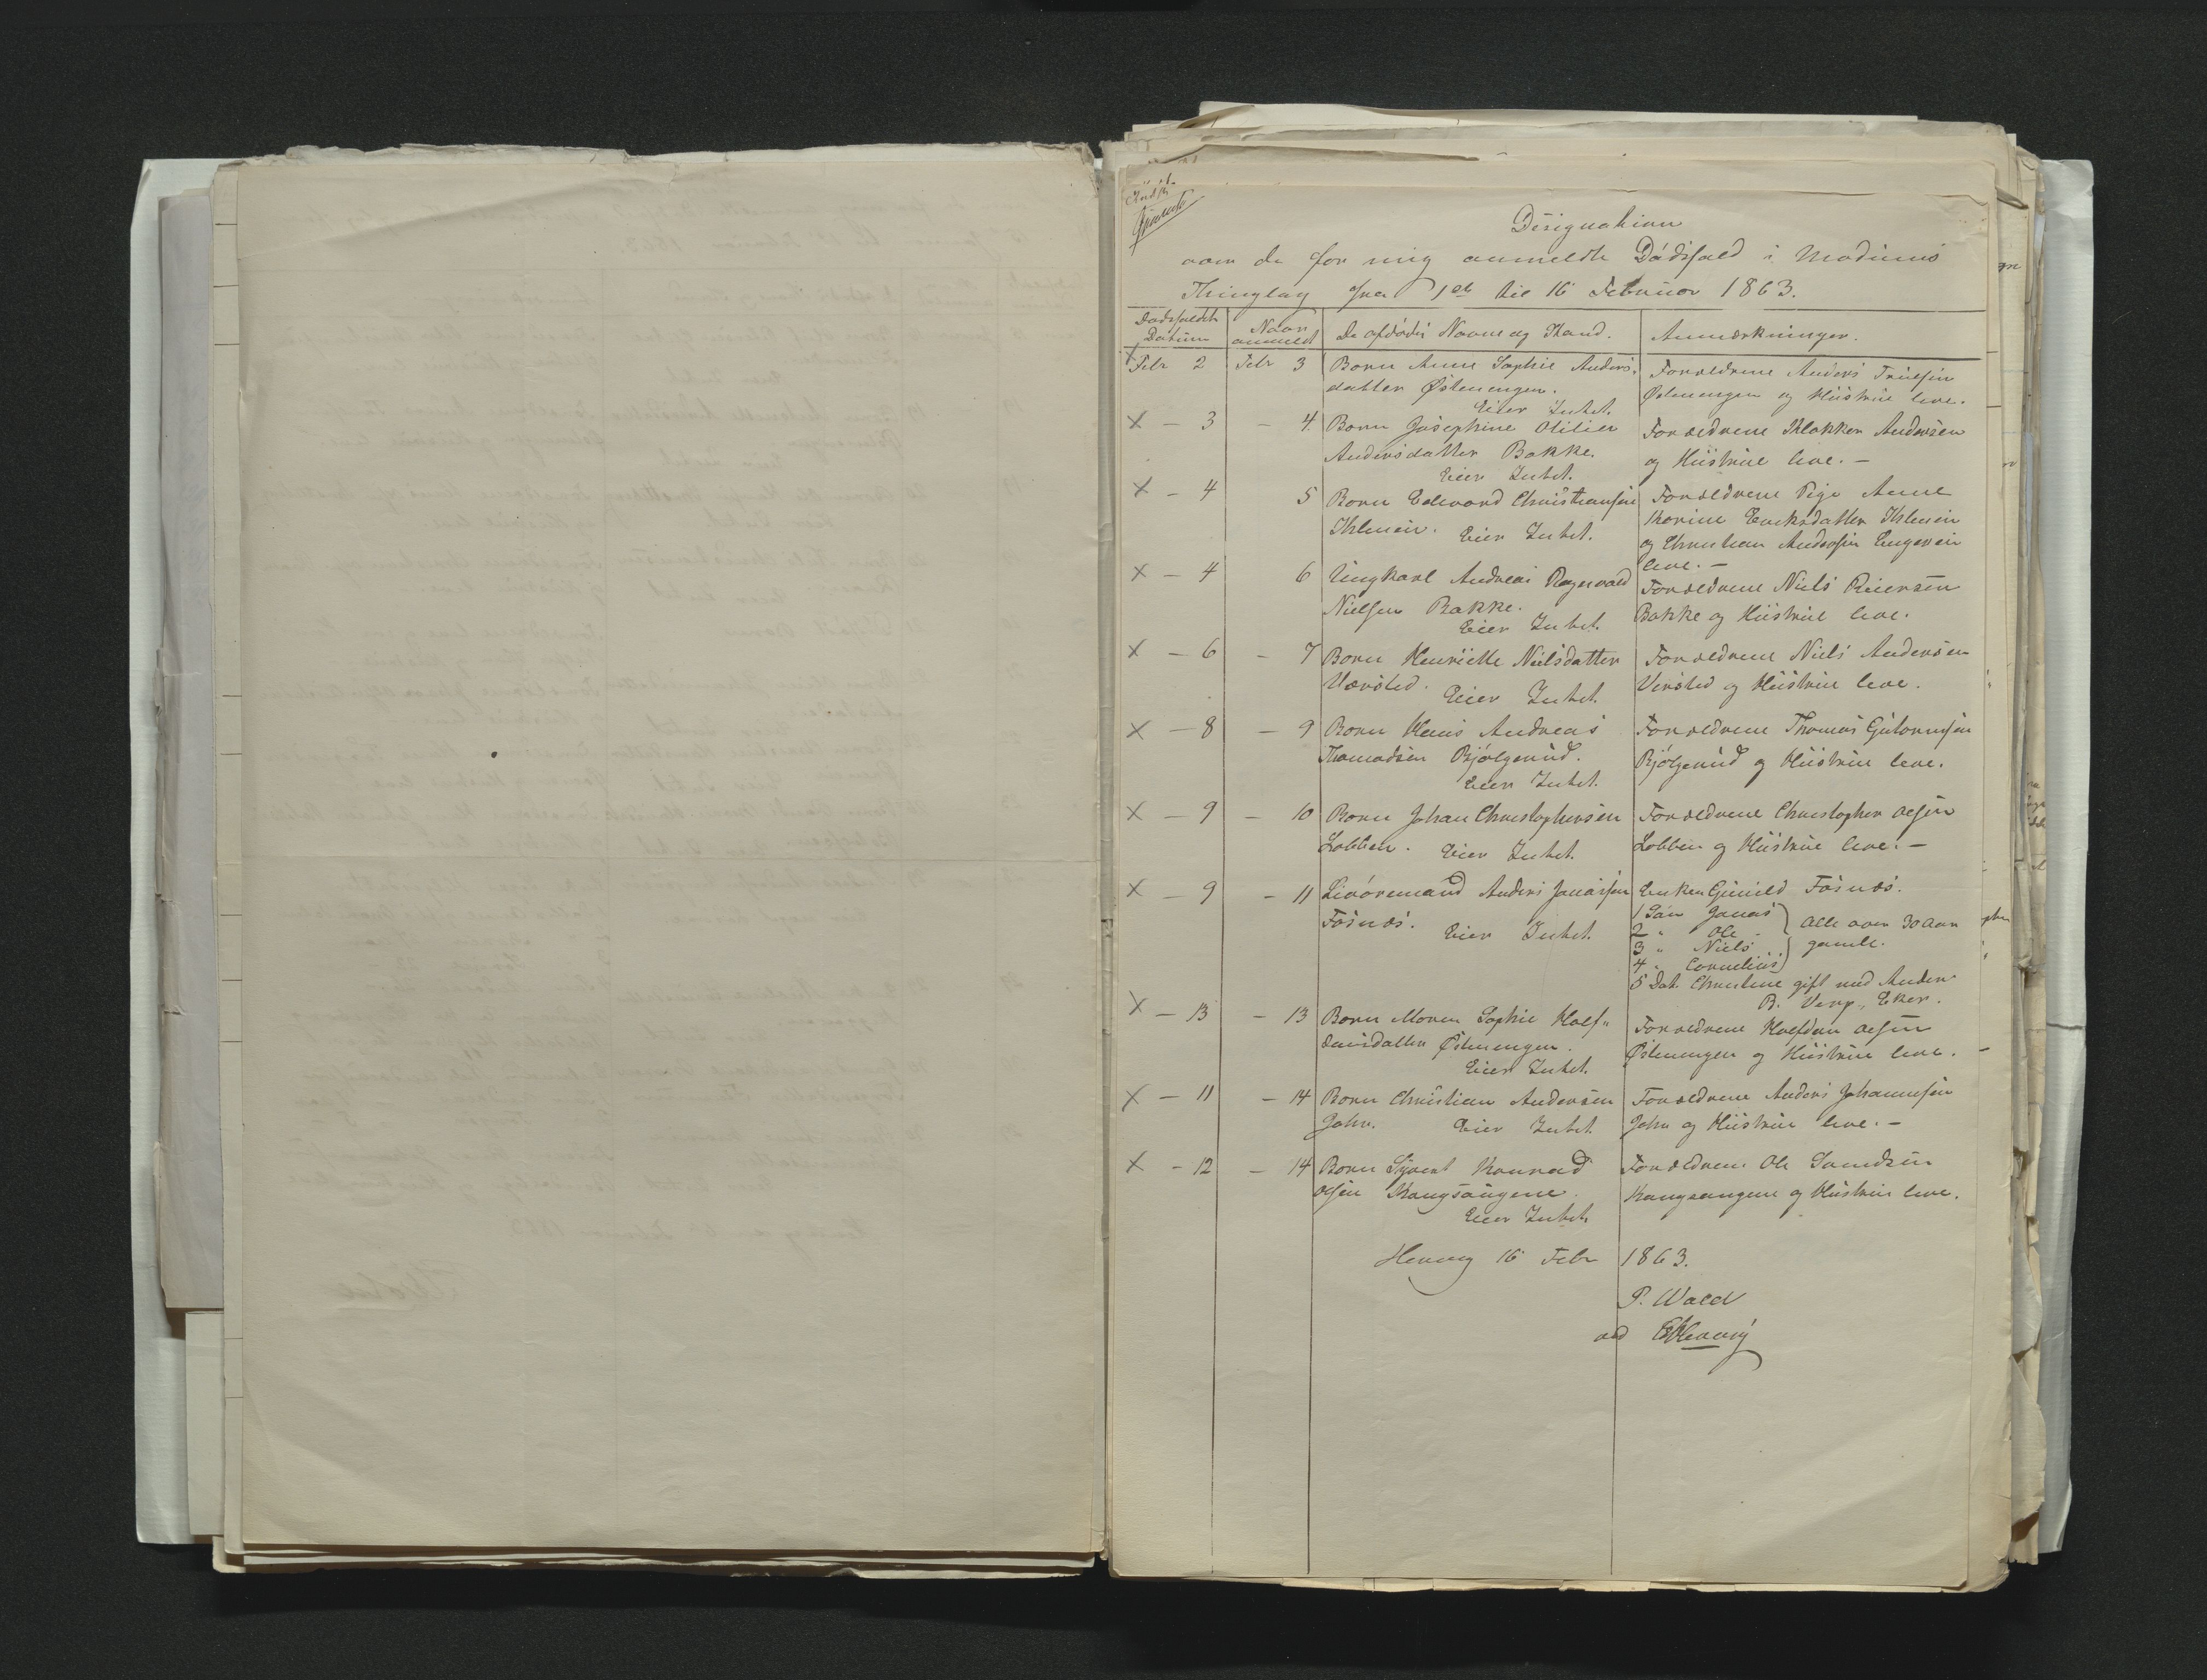 Designation
over de for mig anmeldte Dødsfald i Modums
Thinglag fra 1ste til 16 Februar 1863.
Dødsfaldets Datum | Naar anmeldt | De afdødes Navne og Stand. | Anmærkninger.
Febr 2 | Febr 3 | Barn Anne Sophie Anders-
datter Østenengen.
Eier Intet. | Forældrene Anders Truesen
Østenengen og Hüstrüe leve.
X - 3 | - 4. | Barn Josephine Otilier
Andersdatter Bakke.
Eier Intet. | Forældrene Klokker Andersen
og Hüstrüe leve. -
X - 4 | 5 | Barn Edvard Christiansen
Ihlenein. Eier Intet. | Forældrene Pige Anne
Karine Eriksdatter Ihlenein
og Christian Andersen Engerein
leve. -
X - 4 | 6 | Üngkarl Andreas Ragnvald
Nielsen Bakke.
Eier Intet. | Forældrene Niels Reiersen
Bakke og Hüstrüe leve.
X - 6 | - 7 | Barn Henriette Nielsdatter
Værsted.
Eier Intet | Forældrene Niels Andersen
Versted og Hüstrüe leve.
X - 8 | - 9 | Barn Hans Andreas
Thomadsen Bjølgerüd.
Eier Intet. | Forældrene Thomas Gutormsen
Bjølgerüd og Hüstrüe leve.
X - 9 | - 10 | Barn Johan Christophersen
Lobben. Eier Intet. | Forældrene Christopher Olsen
Lobben og Hüstrüe leve. -
X - 9 | - 11 | Livøremand Anders Jonassen
Fosnæs.
Eier Intet. | Enken Günild Fosnæs.
1 Søn Jonas
2 " Ole
3 " Niels
4 " Cornelius
Alle over 30 Aar
gamle.
5 Dat. Christine gift med Anders
B. Verp., Eker.
X - 13 | - 13 | Barn Maren Sophie Half-
dansdatter Østenengen.
Eier Intet. | Forældrene Halfdan Olsen
Østenengen og Hüstrüe leve. -
X - 11 | - 14 | Barn Christian Andersen
John. Eier Intet | Forældrene Anders Johannesen
John og Hüstrüe leve. -
X - 12 | - 14 | Barn Syvert Konrad
Olsen Kongsaugene.
Eier Intet. | Forældrene Ole
Kongsaugene og Hüstrüe leve.
Hervig 16 Febr 1863.
P. Wald
ved EHervig